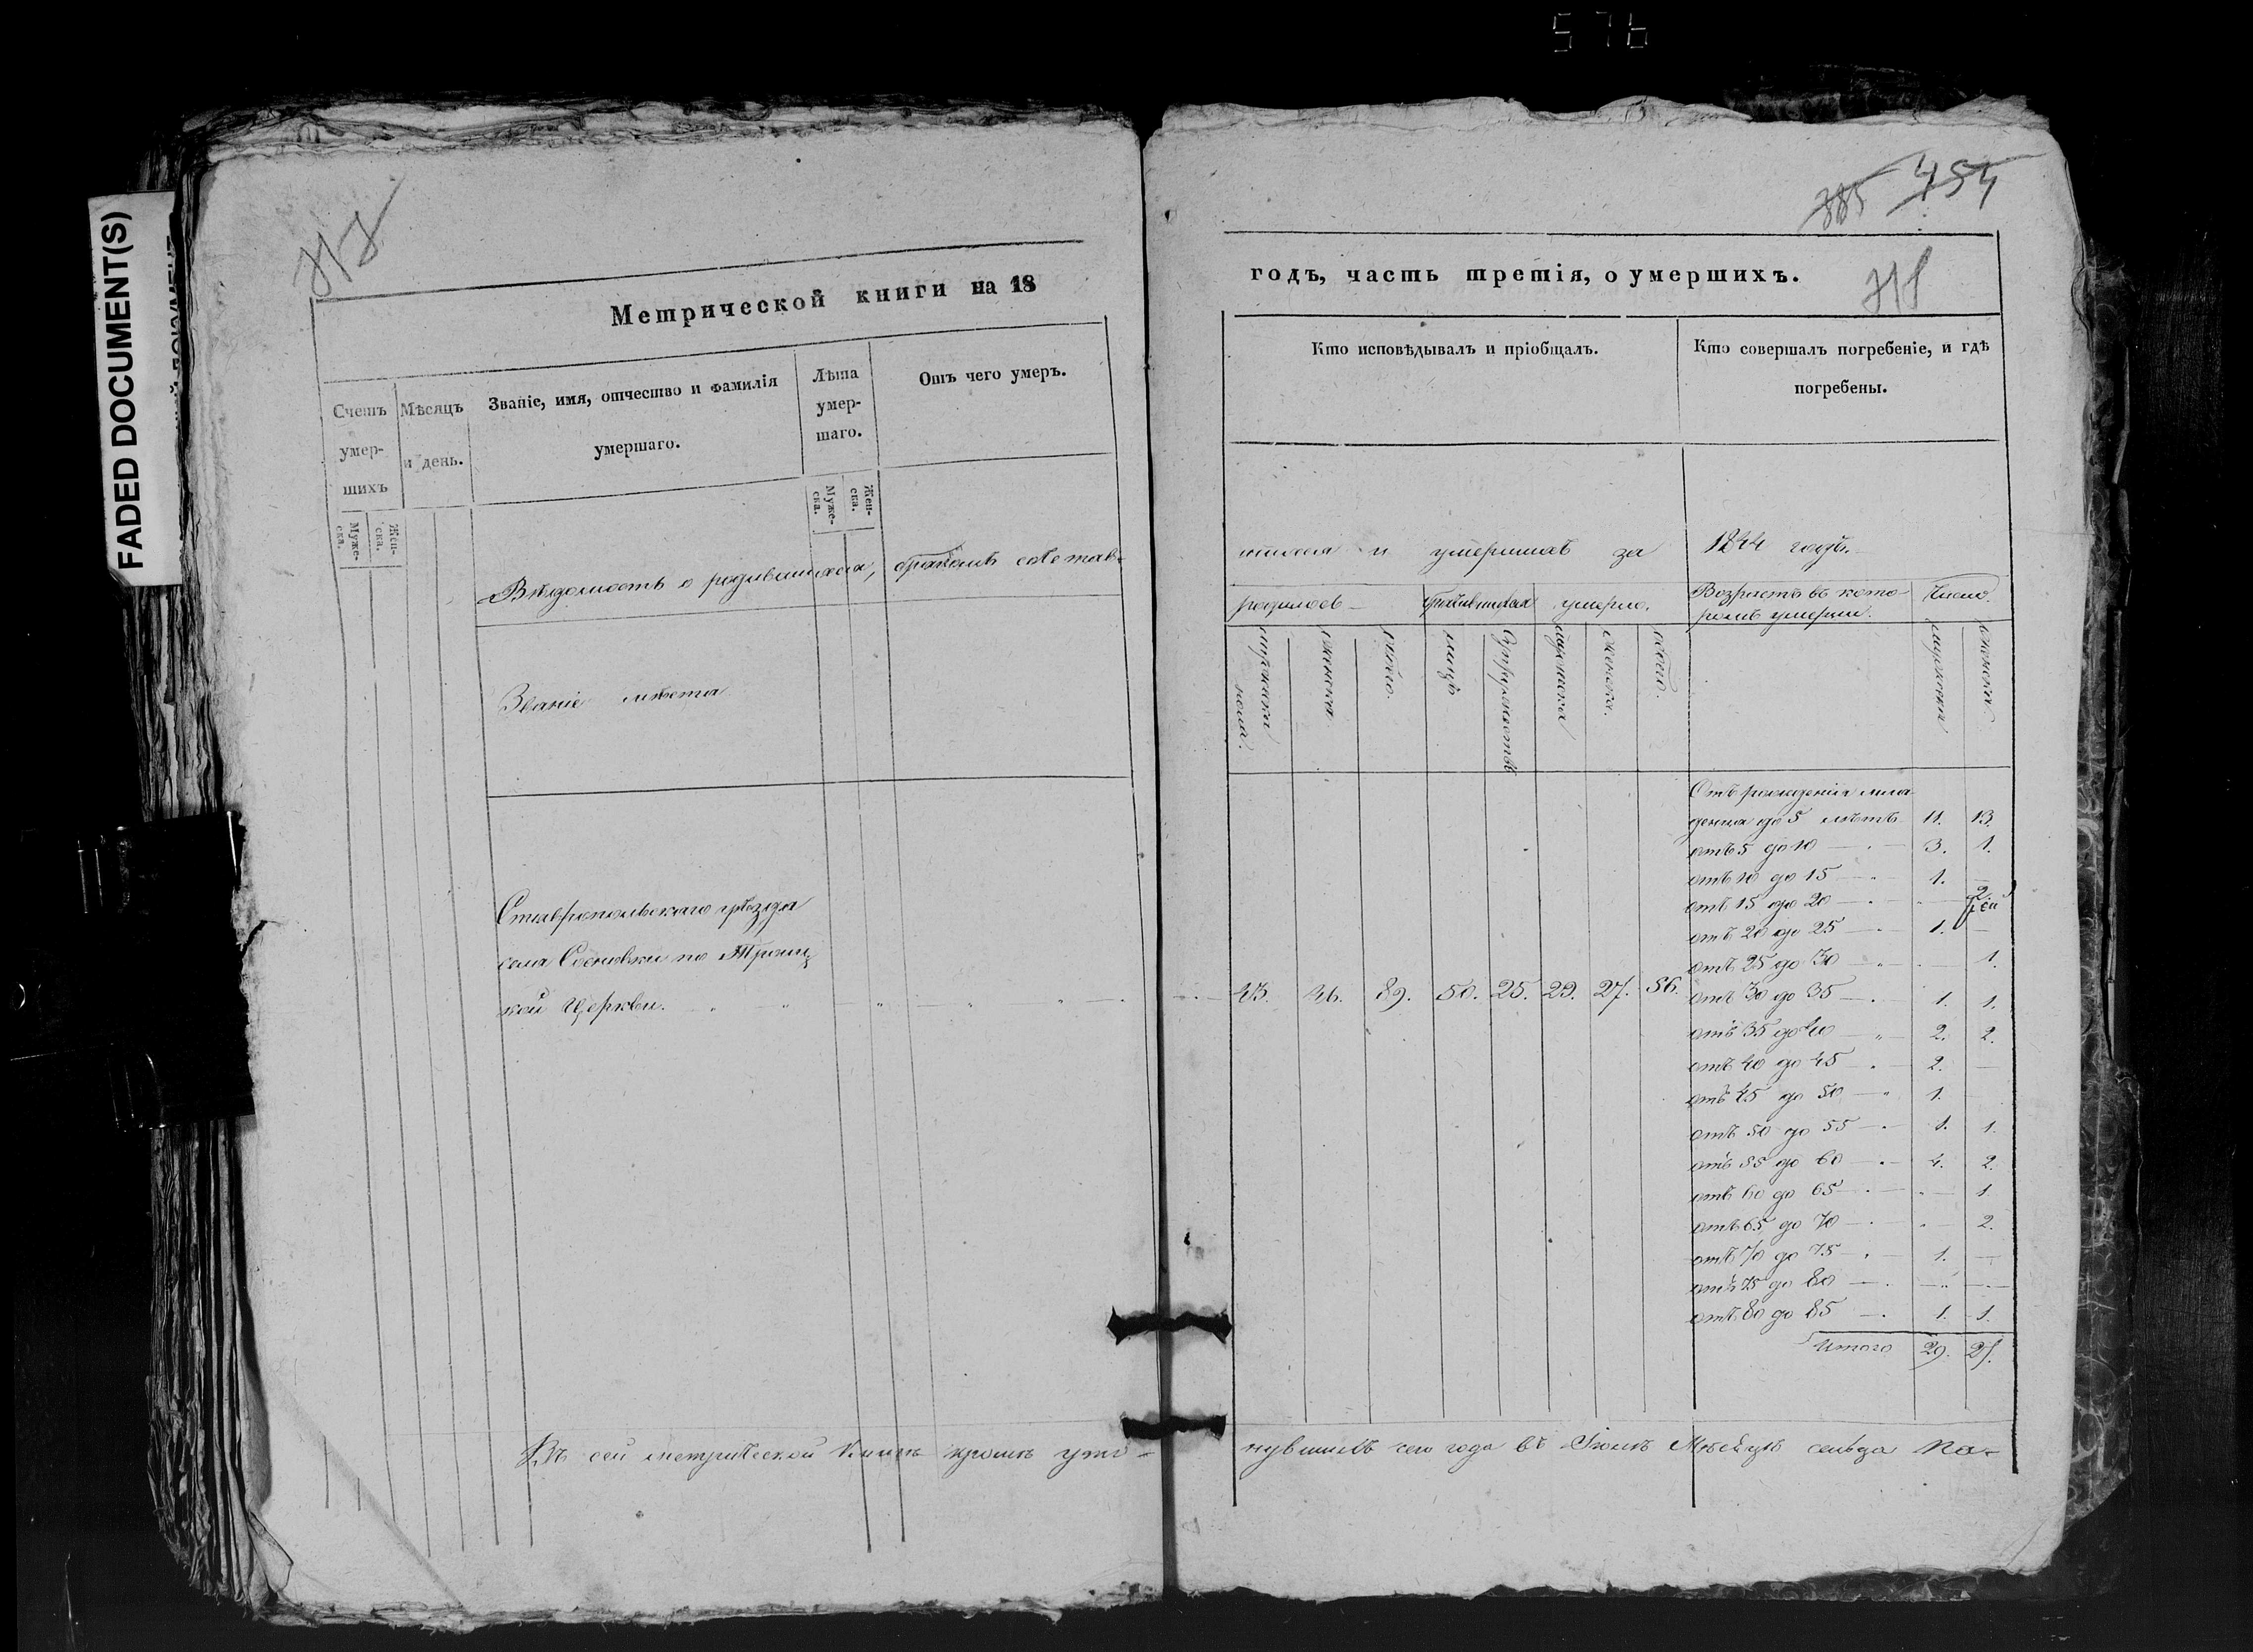 576
FADED DOCUMENT(S)
Метрической книги на 18
Счетъ умер-шихъ
Муже-ска.
Жен-ска.
Мѣсяцъ и день.
Званіе, имя, отчество и фамилія умершаго.
Лѣта умер-шаго.
Муже-ска.
Жен-ска.
Отъ чего умеръ.
Вѣдомость о родившихся, бракомъ сочетав-
Званіе мѣста
Ставропольскаго уѣзда
села Сосновки по Троиц
кой Церкви.
Въ сей метрической книгѣ кромѣ уто-
454
годъ, часть третія, о умершихъ.
Кто исповѣдывалъ и пріобщалъ.
Кто совершалъ погребеніе, и гдѣ
погребены.
шихся и умершихъ за 1844 годъ.
родилось
умерло.
Возрастъ въ кото-
ромъ умерли.
Число.
мужеска пола.
женска.
обоего.
лицъ
Супружествъ
мужеска
женска.
обоего.
мужеска
женска.
43. 46. 89. 50. 25. 29. 27. 56.
Отъ рожденія мла
денца до 5 лѣтъ 11. 13.
отъ 5 до 10 — 3. 1.
отъ 10 до 15 — 1. —
отъ 15 до 20 — 2.
отъ 20 до 25 — 1. —
отъ 25 до 30 — 1.
отъ 30 до 35 — 1. 1.
отъ 35 до 40 — 2. 2.
отъ 40 до 45 — 2. —
отъ 45 до 50 — 1.
отъ 50 до 55 — 1. 1.
отъ 55 до 60 — 4. 2.
отъ 60 до 65 — 1.
отъ 65 до 70 — 2.
отъ 70 до 75 — 1. —
отъ 75 до 80 — — —
отъ 80 до 85 — 1. 1.
Итого 29. 27.
нувшихъ сего года въ Іюлѣ Мѣсяцѣ